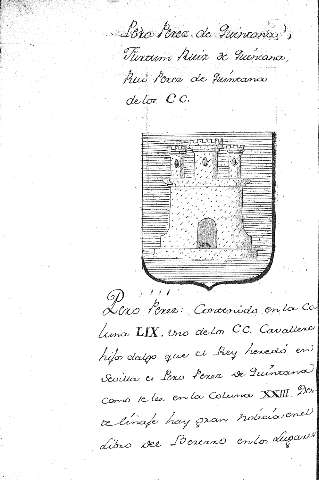 Pero Perez de Quintana,
Furtum Ruiz de Quintana,
Rui Perez de Quintana
de los CC.
Pero Perez: Contenido en la Co
luna LIX. uno de los CC. Cavallero
hijos dalgo que el Rey heredó en
Sevilla es Pero Perez de Quintana
como se lee en la Coluna XXIII. Des
te linaje hay gran noticia en el
Libro del Becerro en los Lugares